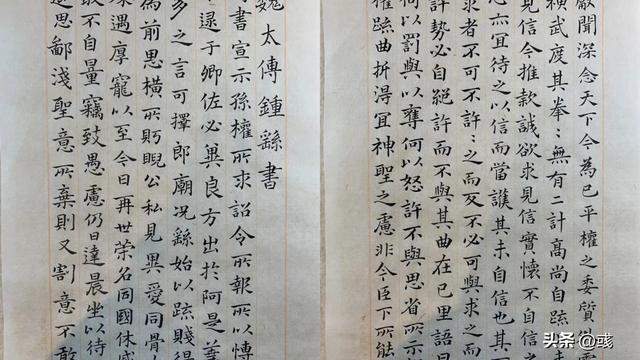 魏太傅鍾繇書
書宣示孫權所求詔令所報所以博
逮于卿佐必冀良方出於阿是芻
多之言可擇郎廟況繇始以疏賤得
為前恩橫所眄睨公私見異愛同骨
深遇厚寵以至今日再世榮名同國休戚
敢不自量竊致愚慮仍日達晨坐以待
退思鄙淺聖意所棄則又割意不敢
獻聞深念天下今為已平權之委質外
橫武度其拳:無有二計高尚自疏未
見信今推款誠欲求見信實懷不自信
心亦宜待之以信而當護其未自信也其
求者不可不許:之而反不必可與求之而
許勢必自絕許而不與其曲在己里語曰
何以罰與以奪何以怒許不與思省所示
權疏曲折得宜神聖之慮非今臣下所能
头条 @彧